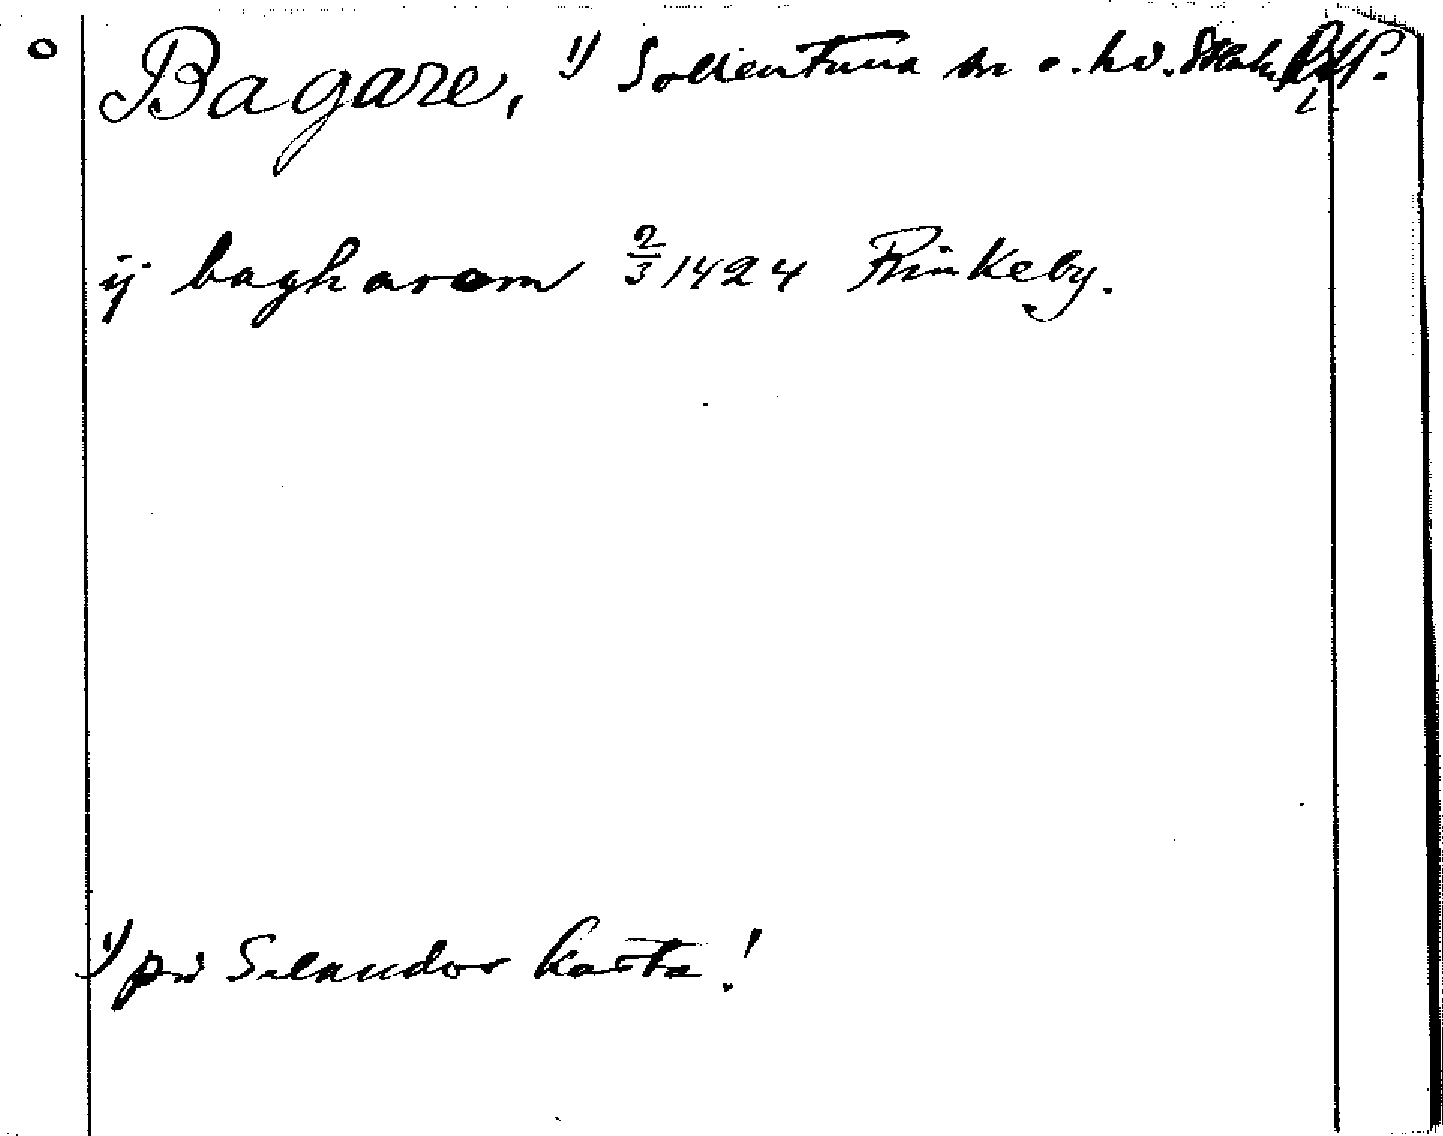 Bagare, 1) Sollentuna sn o. hd. Stock
ij bagharom 2/3 1424 Rinkeby.
1) på Selanders karta!